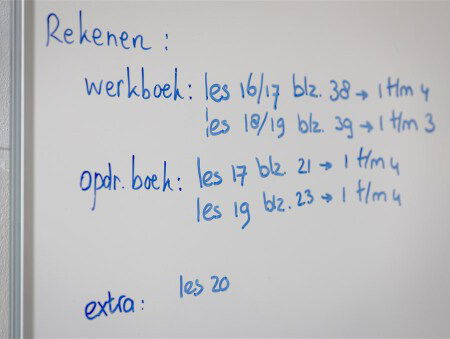 Rekenen :
werkboek: les 16/17 blz. 38 → 1 t/m 4
les 18/19 blz. 39 → 1 t/m 3
opdr. boek: les 17 blz. 21 → 1 t/m 4
les 19 blz. 23 → 1 t/m 4
extra: les 20